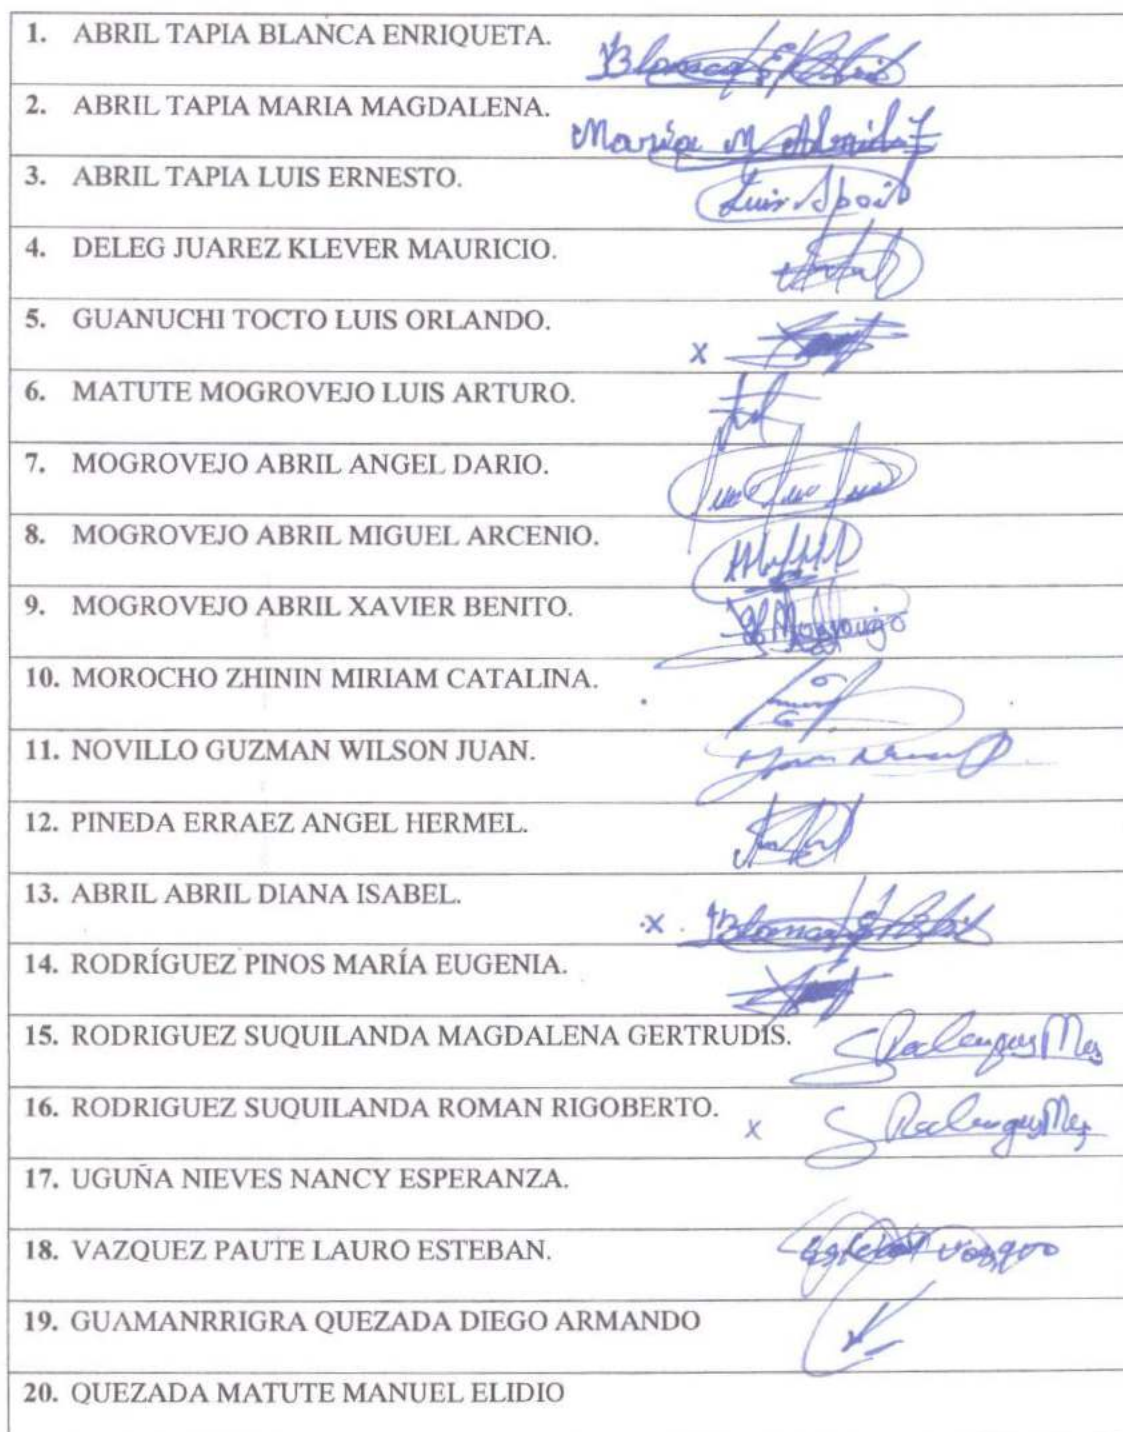 1. ABRIL TAPIA BLANCA ENRIQUETA. Blanca E Abril
2. ABRIL TAPIA MARIA MAGDALENA. Maria M Abril
3. ABRIL TAPIA LUIS ERNESTO. Luis Abril
4. DELEG JUAREZ KLEVER MAURICIO.
5. GUANUCHI TOCTO LUIS ORLANDO. x
6. MATUTE MOGROVEJO LUIS ARTURO.
7. MOGROVEJO ABRIL ANGEL DARIO.
8. MOGROVEJO ABRIL MIGUEL ARCENIO.
9. MOGROVEJO ABRIL XAVIER BENITO. Mogrovejo
10. MOROCHO ZHININ MIRIAM CATALINA.
11. NOVILLO GUZMAN WILSON JUAN.
12. PINEDA ERRAEZ ANGEL HERMEL.
13. ABRIL ABRIL DIANA ISABEL. x Blanca E Abril
14. RODRÍGUEZ PINOS MARÍA EUGENIA.
15. RODRIGUEZ SUQUILANDA MAGDALENA GERTRUDIS.
16. RODRIGUEZ SUQUILANDA ROMAN RIGOBERTO. x
17. UGUÑA NIEVES NANCY ESPERANZA.
18. VAZQUEZ PAUTE LAURO ESTEBAN.
19. GUAMANRRIGRA QUEZADA DIEGO ARMANDO
20. QUEZADA MATUTE MANUEL ELIDIO